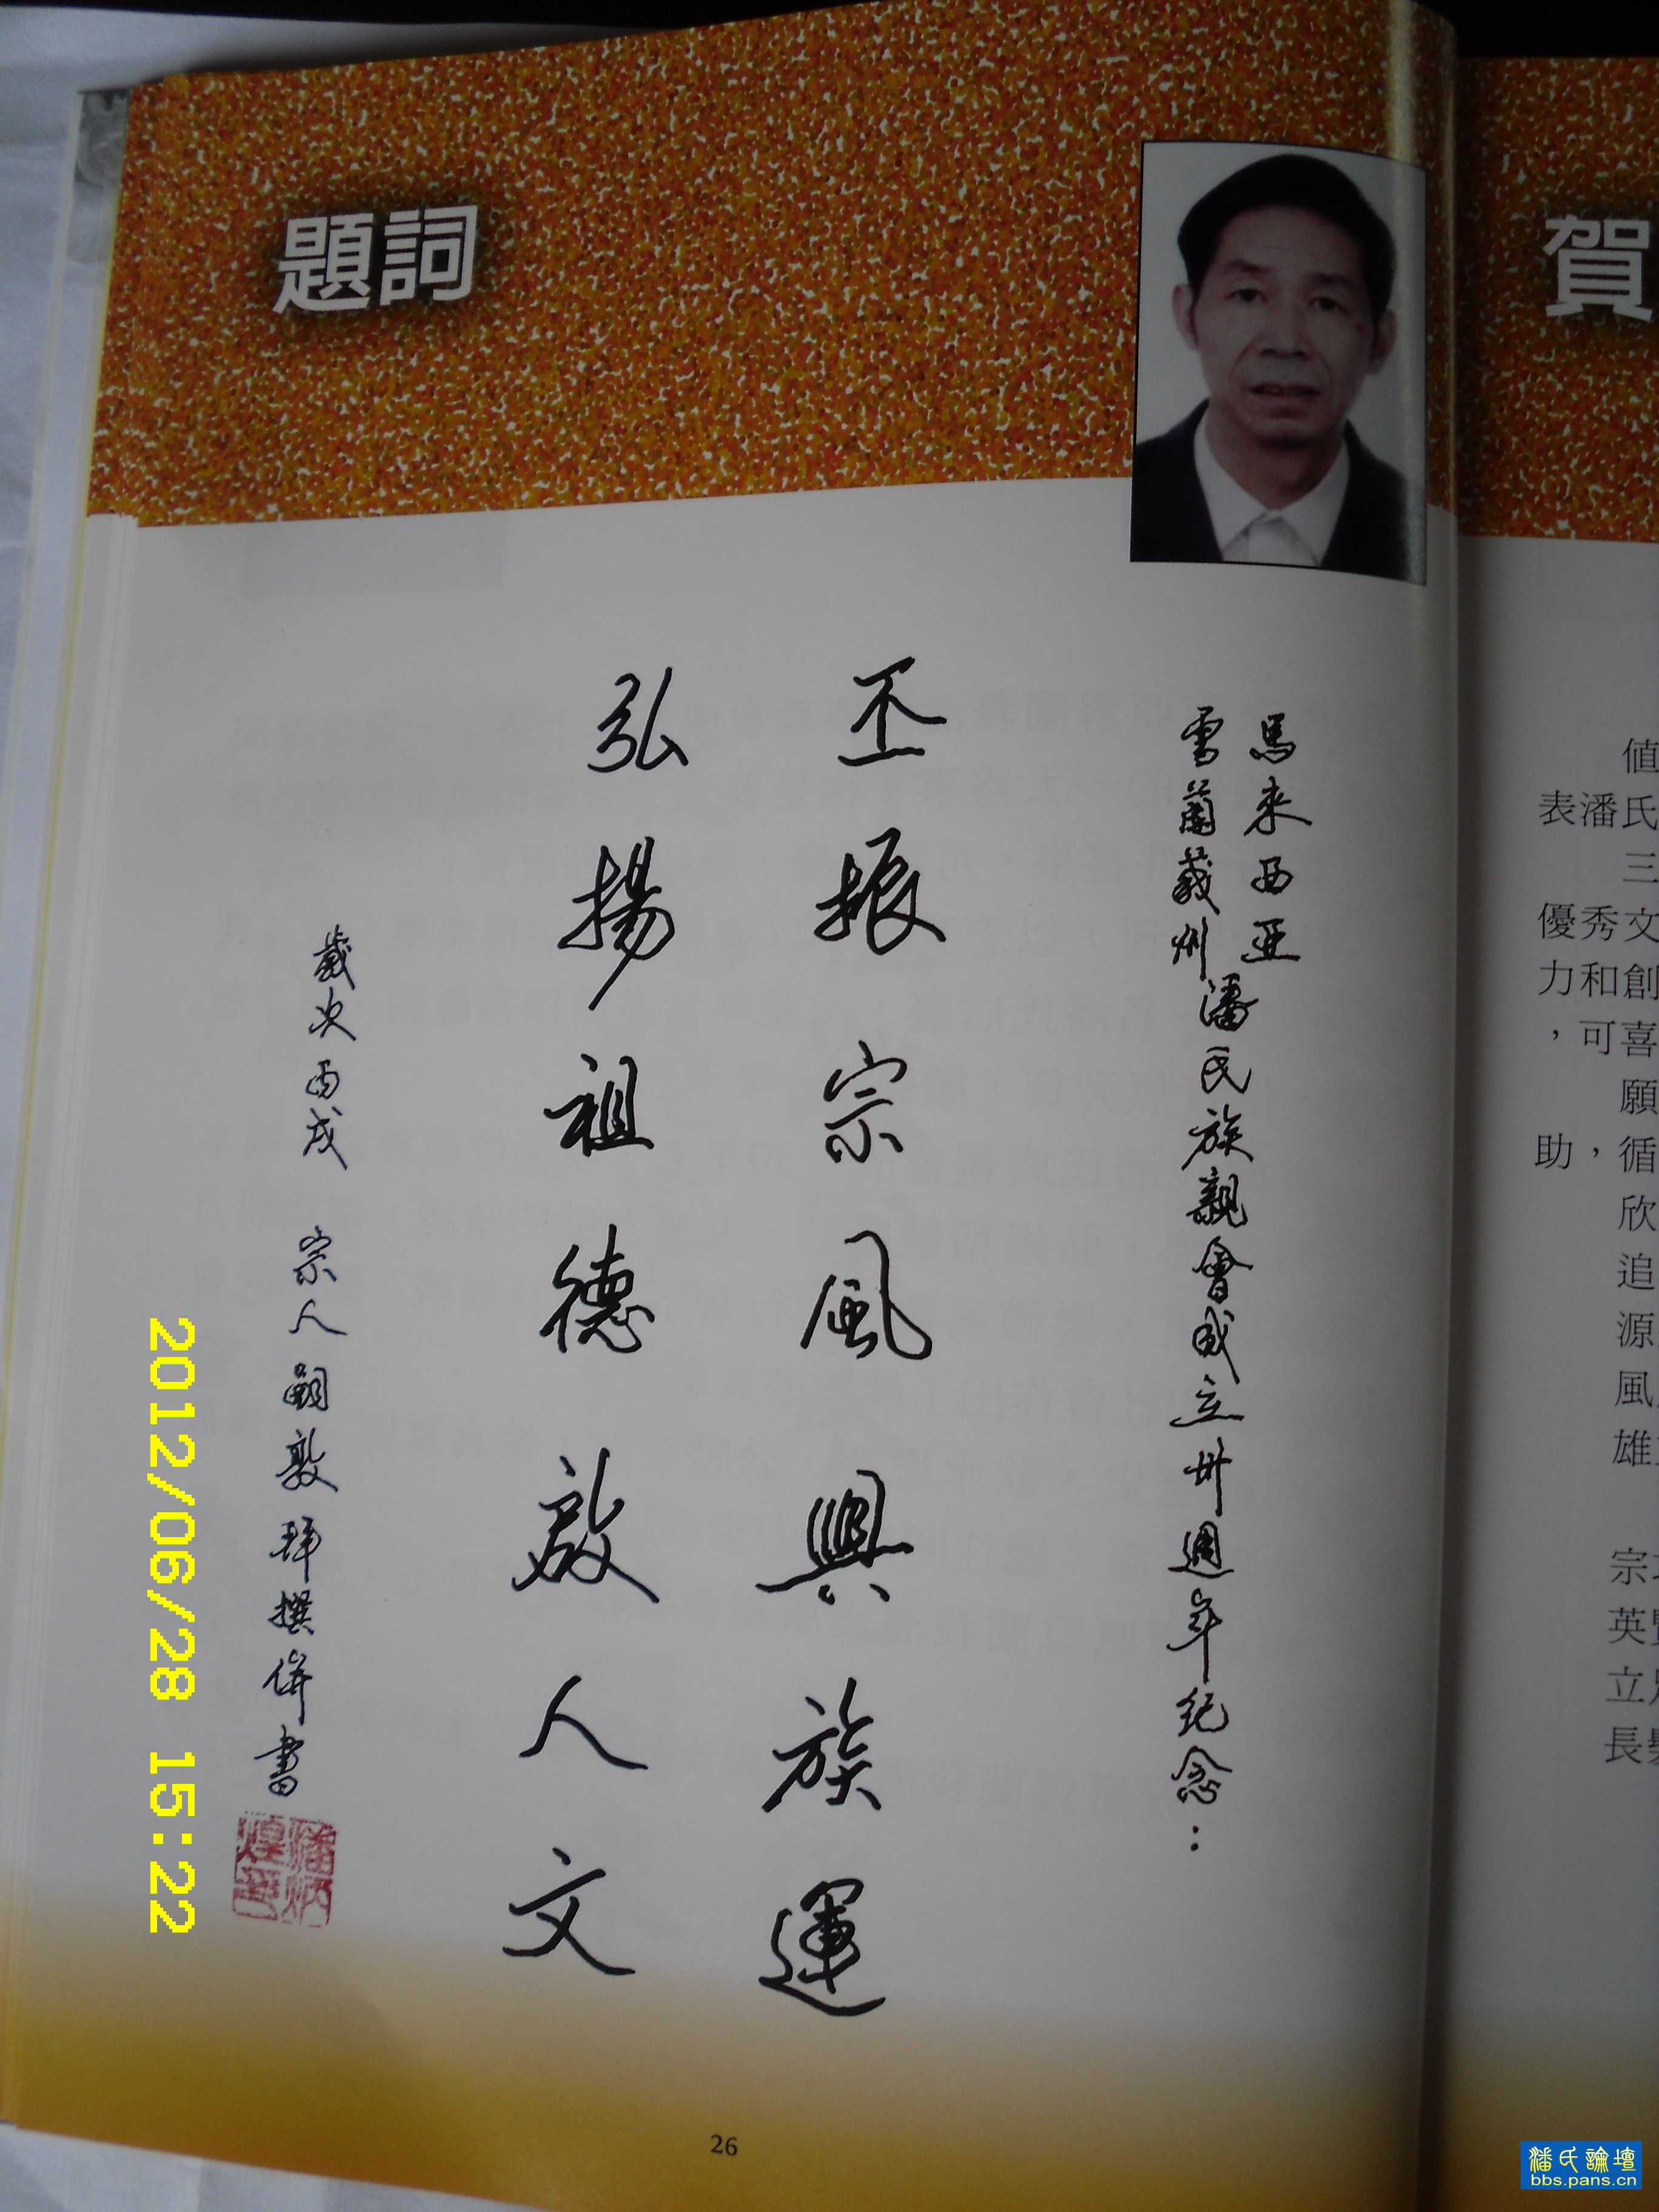 題詞
馬來西亞
雪蘭莪州
潘氏族親會成立卅週年纪念：
丕振宗風興族運
弘揚祖德啟人文
歲次丙戌 宗人嗣敦拜撰併書
潘炳
煌印
26
2012/06/28 15:22
賀
值
表潘氏
三
優秀文
力和創
，可喜
願
助，循
欣
追
源
風
雄
宗
英
立
長
潘氏論壇
bbs.pans.cn